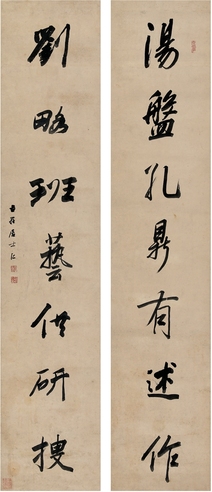 湯盤孔鼎有述作
劉略班藝供研搜